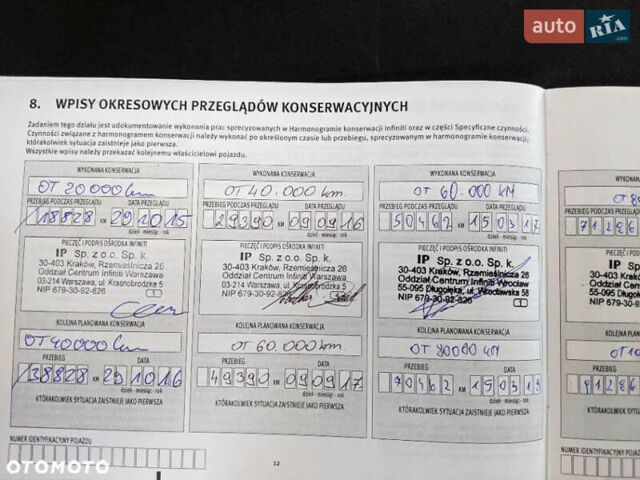 auto RIA.com
8. WPISY OKRESOWYCH PRZEGLĄDÓW KONSERWACYJNYCH
Zadaniem tego działu jest udokumentowanie wykonania prac sprecyzowanych w Harmonogramie konserwacji Infiniti oraz w części Specyficzne czynności.
Czynności związane z harmonogramem konserwacji należy wykonać po określonym czasie lub przebiegu, sprecyzowanym w harmonogramie konserwacji;
którakolwiek sytuacja zaistnieje jako pierwsza.
Wszystkie wpisy należy przekazać kolejnemu właścicielowi pojazdu.
WYKONANA KONSERWACJA
OT 20000 km
PRZEBIEG PODCZAS PRZEGLĄDU DATA PRZEGLĄDU
18828 KM 291015
dzień - miesiąc - rok
PIECZĘĆ I PODPIS OŚRODKA INFINITI
IP Sp. z o.o. Sp. k.
30-403 Kraków, Rzemieślnicza 26
Oddział Centrum Infiniti Warszawa
03-214 Warszawa, ul. Krasnobrodzka 5
NIP 679-30-92-826
1
KOLEJNA PLANOWANA KONSERWACJA
OT 40000 km
PRZEBIEG DATA
38828 KM 291016
dzień - miesiąc - rok
KTÓRAKOLWIEK SYTUACJA ZAISTNIEJE JAKO PIERWSZA
WYKONANA KONSERWACJA
OT 40.000 km.
PRZEBIEG PODCZAS PRZEGLĄDU DATA PRZEGLĄDU
29390 KM 090916
dzień - miesiąc - rok
PIECZĘĆ I PODPIS OŚRODKA INFINITI
IP Sp. z o.o. Sp. k.
30-403 Kraków, Rzemieślnicza 26
Oddział Centrum Infiniti Warszawa
03-214 Warszawa, ul. Krasnobrodzka 5
NIP 679-30-92-826
KOLEJNA PLANOWANA KONSERWACJA
OT 60.000 km.
PRZEBIEG DATA
49390 KM 090917
dzień - miesiąc - rok
KTÓRAKOLWIEK SYTUACJA ZAISTNIEJE JAKO PIERWSZA
WYKONANA KONSERWACJA
OT 60.000 KM
PRZEBIEG PODCZAS PRZEGLĄDU DATA PRZEGLĄDU
50462 KM 150317
dzień - miesiąc - rok
PIECZĘĆ I PODPIS OŚRODKA INFINITI
IP Sp. z o.o. Sp. k.
30-403 Kraków, Rzemieślnicza 26
Oddział Centrum Infiniti Wrocław
55-095 Długołęka, ul. Wrocławska 58
NIP 679-30-92-826
1
KOLEJNA PLANOWANA KONSERWACJA
OT 80000 KM
PRZEBIEG DATA
70462 KM
dzień - miesiąc - rok
KTÓRAKOLWIEK SYTUACJA ZAISTNIEJE JAKO PIERWSZA
PRZEBIEG PODCZAS
71286
IP
30-403
Oddział
55-095
NIP 679
KOLEJNA
PRZEBIEG
91286
KTÓRAKOLWIEK
NUMER IDENTYFIKACYJNY POJAZDU
12
NUMER IDENTYFIKACYJNY
OTOMOTO